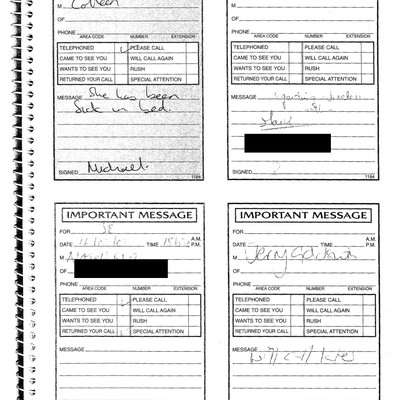 M Colleen
OF
PHONE
AREA CODE NUMBER EXTENSION
TELEPHONED PLEASE CALL
CAME TO SEE YOU WILL CALL AGAIN
WANTS TO SEE YOU RUSH
RETURNED YOUR CALL SPECIAL ATTENTION
MESSAGE She has been
Sick in bed.
Michael
SIGNED
1184
M
OF
PHONE
AREA CODE NUMBER EXTENSION
TELEPHONED PLEASE CALL
CAME TO SEE YOU WILL CALL AGAIN
WANTS TO SEE YOU RUSH
RETURNED YOUR CALL SPECIAL ATTENTION
MESSAGE
SIGNED
1184
IMPORTANT MESSAGE
FOR
DATE TIME A.M.
P.M.
M
OF
PHONE
AREA CODE NUMBER EXTENSION
TELEPHONED PLEASE CALL
CAME TO SEE YOU WILL CALL AGAIN
WANTS TO SEE YOU RUSH
RETURNED YOUR CALL SPECIAL ATTENTION
MESSAGE
IMPORTANT MESSAGE
FOR
DATE TIME A.M.
P.M.
M Jerry
OF
PHONE
AREA CODE NUMBER EXTENSION
TELEPHONED PLEASE CALL
CAME TO SEE YOU WILL CALL AGAIN
WANTS TO SEE YOU RUSH
RETURNED YOUR CALL SPECIAL ATTENTION
MESSAGE
will call